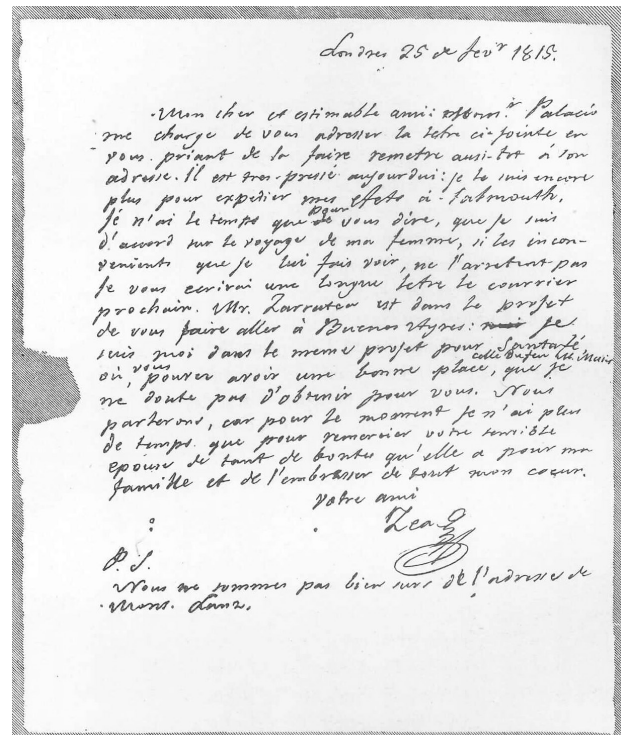 Londres 25 de fevr 1815.
Mon cher et estimable ami: Monsr. Palacio
me charge de vous adresser la letre ci-jointe en
vous priant de la faire remetre ausi-tot á son
adresse. Il est tres-pressé aujourdui: je le suis encore
plus pour expedier mes efets á Falmouth,
Je n'ai le temps que pour vous dire, que je suis
d'acord sur le voyage de ma femme, si les incon-
venients que je lui fais voir, ne l'arretent pas
Je vous ecrirai une longue letre le courrier
prochain. Mr. Zarratea est dans le projet
de vous faire aller á Buenos Ayres: Je
suis moi dans le meme projet pour Santafé
où vous pouvez avoir une bonne place, celle du feu que je
ne doute pas d'obtenir pour vous. Nous
parlerons, car pour le moment je n'ai plus
de temps que pour remercier votre sensible
epouse de tant de bontes qu'elle a pour ma
famille et de l'embrasser de tout mon coeur.
Votre ami
Zea
P. S.
Nous ne sommes pas bien surs de l'adresse de
Mons. Lanz.